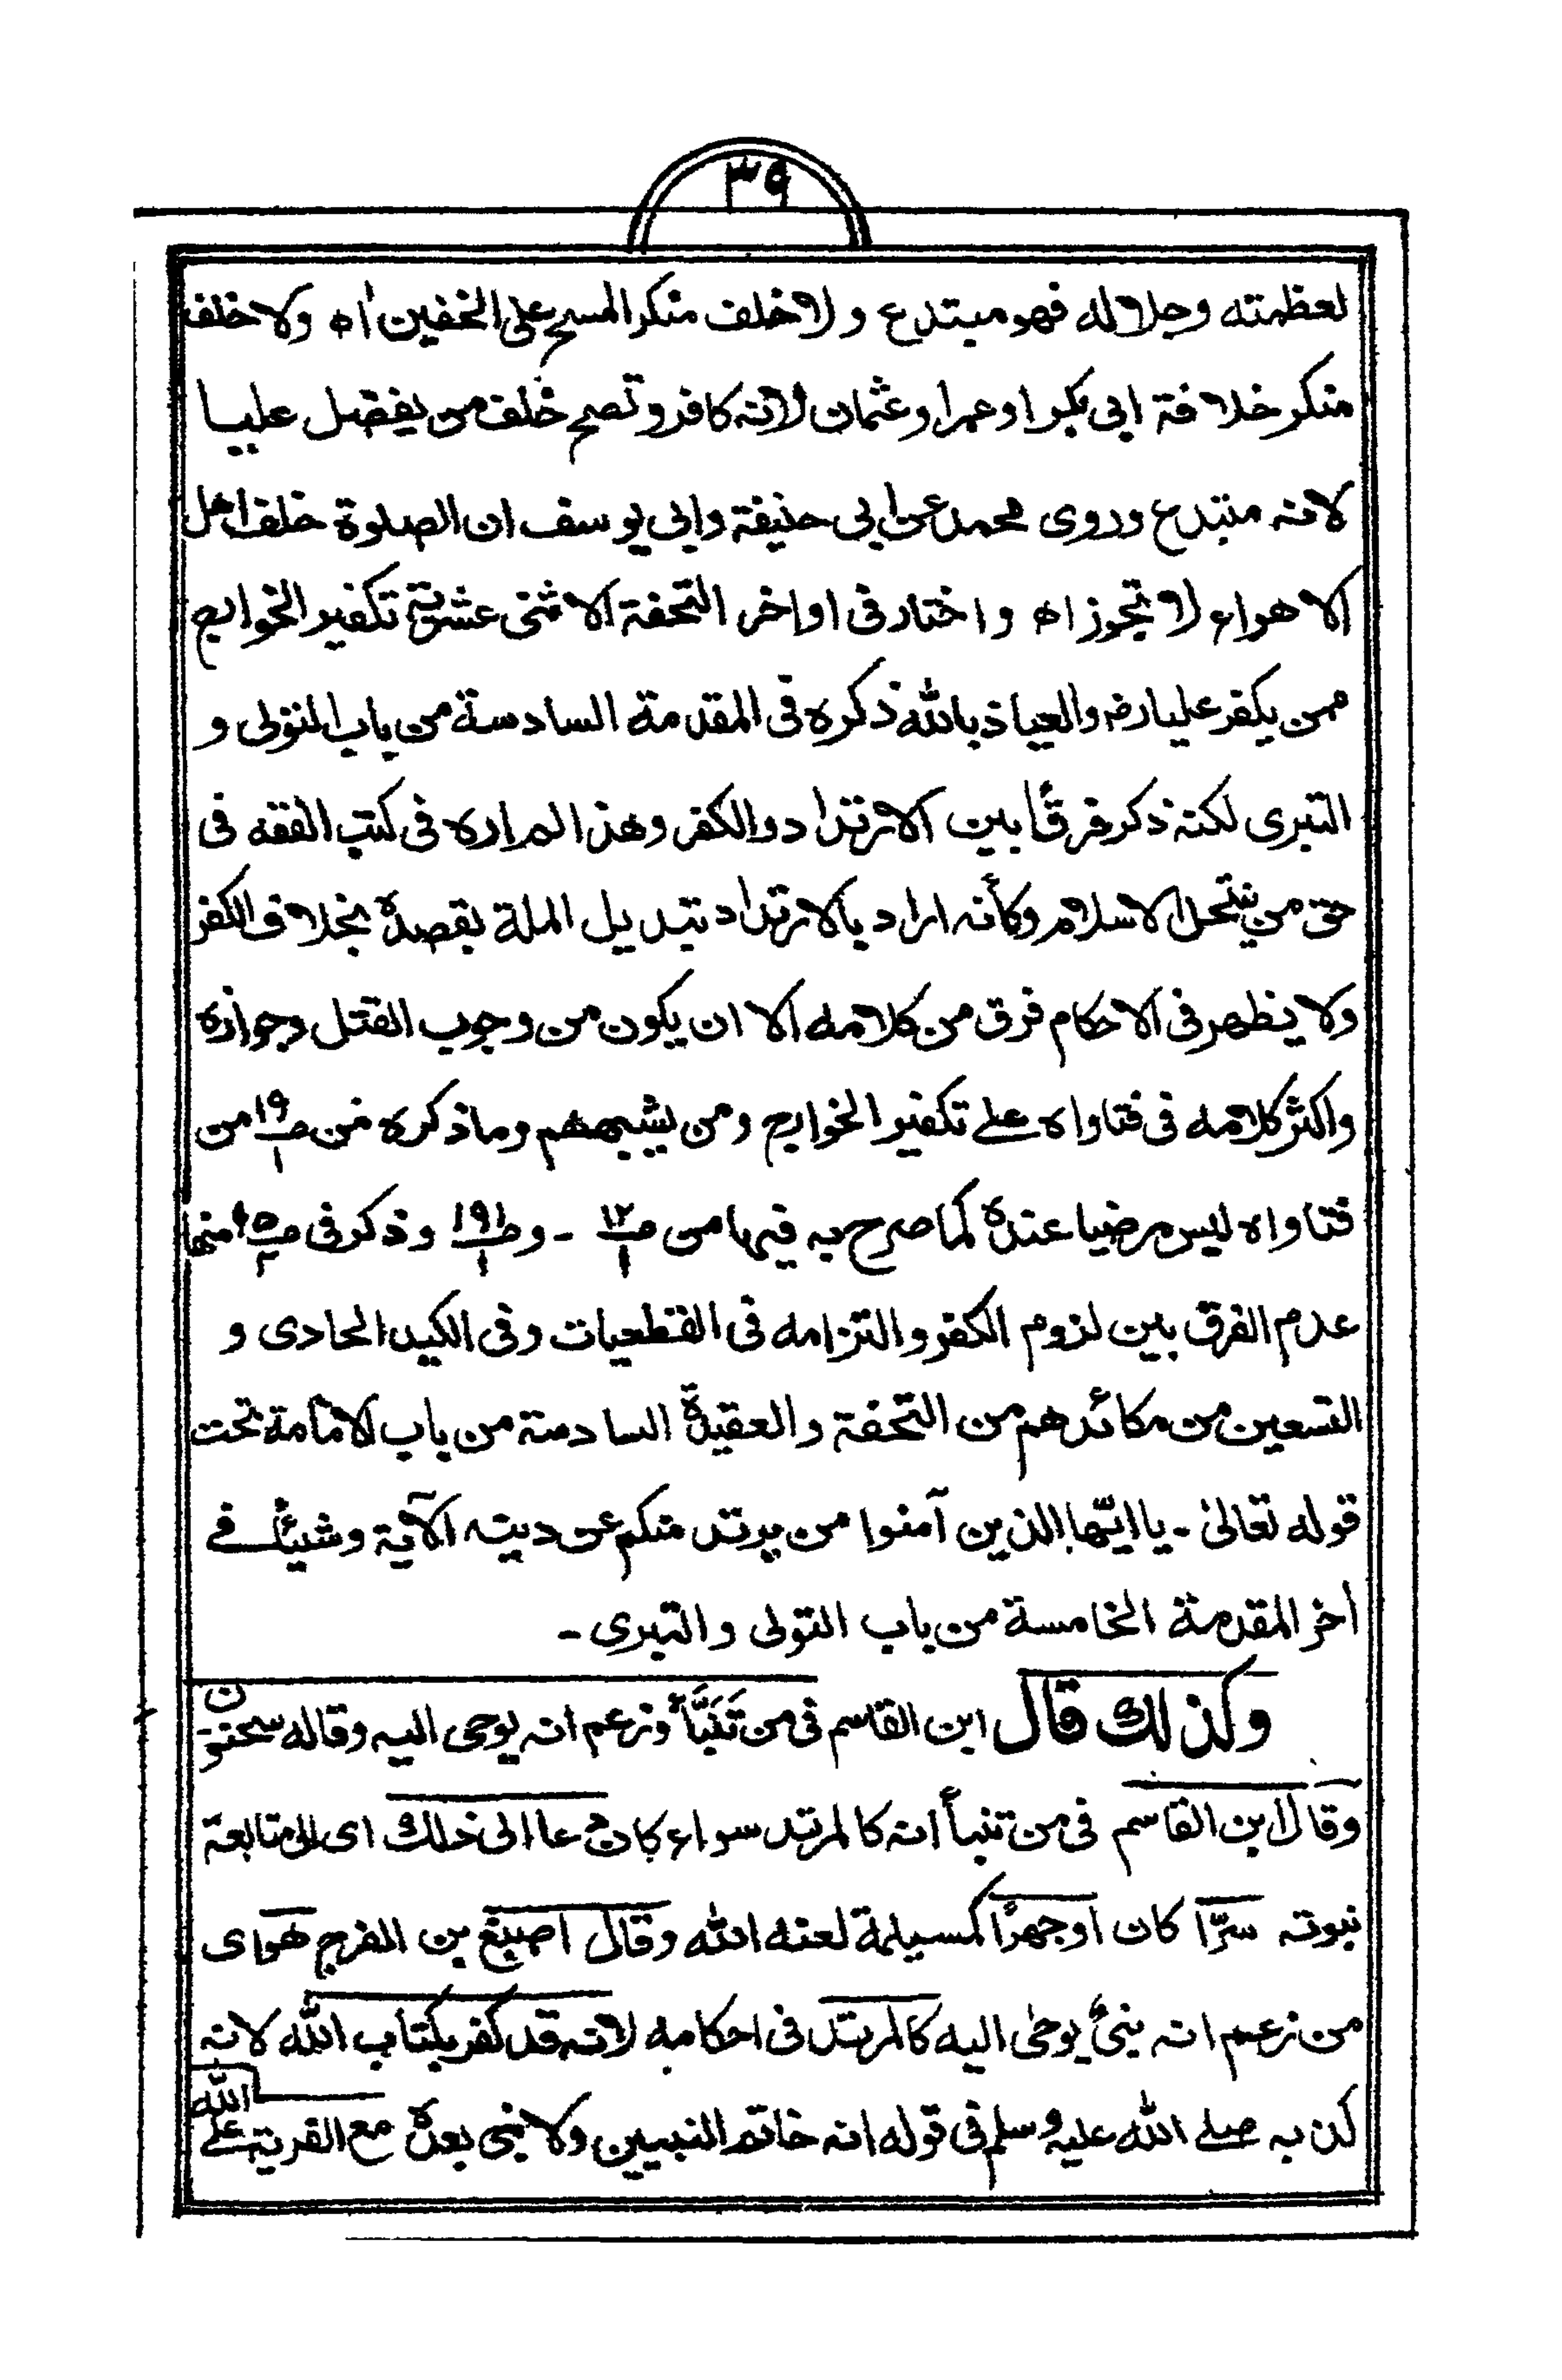 ٣٩
لعظمته وجلاله فهو مبتدع ولا خلف منكر المسح على الخفين اه ولا خلف
منكر خلافة ابى بكر او عمر او عثمان لانه كافر وتصح خلف من يفضل عليا
لانه مبتدع وروى محمد عن ابى حنيفة وابى يوسف ان الصلوة خلف اهل
الاهواء لا تجوز اه واختار فى اواخر التحفة الاثنى عشرية تكفير الخوارج
ممن يكفر عليا رضـ والعياذ بالله ذكره فى المقدمة السادسة من باب المتولى و
التبرى لكنه ذكر فرقًا بين الارتداد والكفر وهذا لم اره فى كتب الفقه فى
حق من ينتحل الاسلام وكأنه اراد بالارتداد تبديل الملة بقصده بخلاف الكفر
ولا يظهر فى الاحكام فرق من كلامه الا ان يكون من وجوب القتل وجوازه
واكثر كلامه فى فتاواه على تكفير الخوارج ومن يشبههم وما ذكره من صـ١٩/١ من
فتاواه ليس مرضيا عنده كما صرح به فيها من صـ١٢/١ - وصـ١٩١/١ وذكر فى منها
عدم الفرق بين لزوم الكفر والتزامه فى القطعيات وفى الكيد الحادى و
التسعين من مكائدهم من التحفة والعقيدة السادسة من باب الامامة تحت
قوله تعالىٰ - يا ايّها الذين آمنوا من يرتد منكم عن دينه الآية وشيئًا فى
اخر المقدمة الخامسة من باب التولى والتبرى -
وكذلك قال ابن القاسم فى من تَنَبَّأ وزعم انه يوحى اليه وقاله سحنون
وقال ابن القاسم فى من تنبأ انه كالمرتد سواء كان دعا الى ذلك اى الى متابعة
نبوته سرًّا كان اوجهرًا كمسيلمة لعنه الله وقال اصبغ بن الفرج هو اى
من زعم انه نبىٌّ يوحىٰ اليه كالمرتد فى احكامه لانه قد كفر بكتاب الله لانه
كذبه صلے الله عليه وسلم فى قوله انه خاتم النبيين ولا نبى بعده مع الفرية على الله